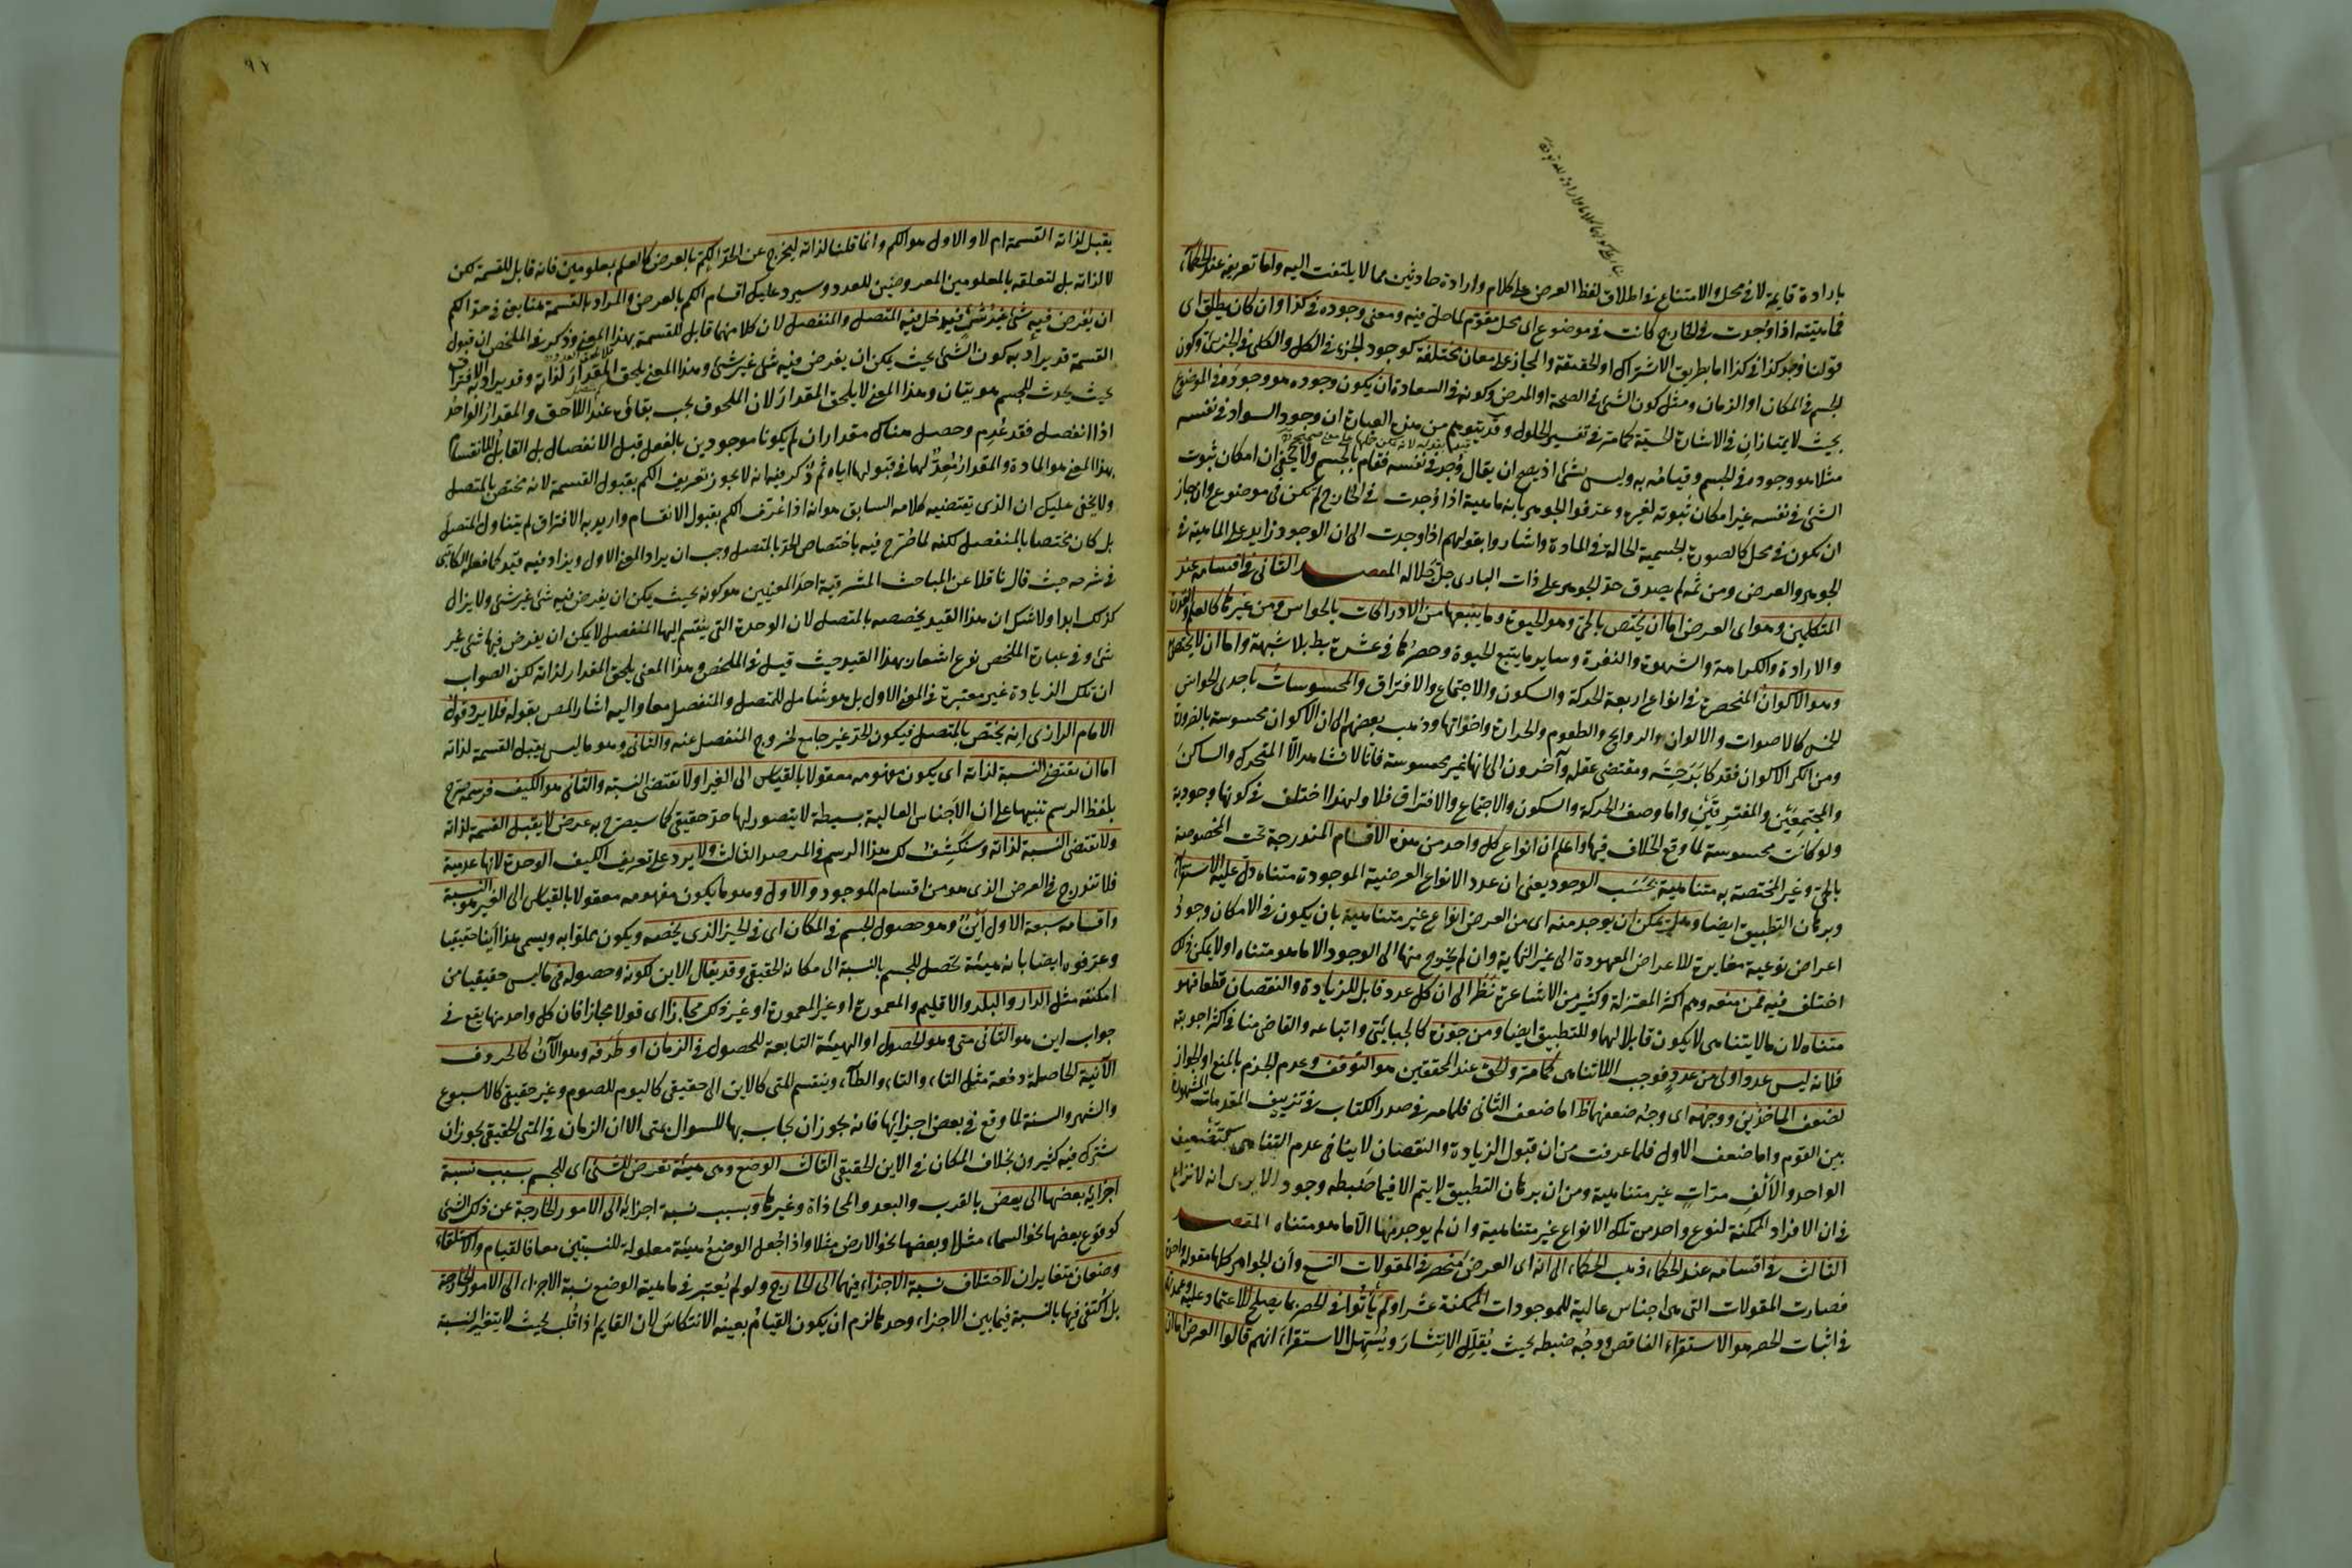 بارادة قايمة لا في محل والامتناع في اطلاق لفظ العرض على كلام وارادة حادثين مما لا يلتفت اليه واما تعريفه عند الحكماء
فماهيته اذا وجدت في الخارج كانت في موضوع اى محل مقوم لما حل فيه ومعنى وجوده في كذا وان كان يطلق اى
قولنا وجد كذا في كذا اما بطريق الاشتراك او الحقيقة والمجاز على معان مختلفة كوجود الجزء في الكل والكلى في الجزئى وكون
الجسم في المكان او الزمان ومثل كون الشئ في الصحة او المرض وكونه في السعادة ان يكون وجوده هو وجوده في الموضوع
بحيث لا يمتازان في الاشارة الحسية كما مر في تفسير الحلول وقد يتوهم من هذه العبارة ان وجود السواد في نفسه
مثلا هو وجوده في الجسم وقيامه به وليس بشئ اذ يصح ان يقال وجد في نفسه فقام بالجسم ولا يخفى ان امكان ثبوت
الشئ في نفسه غير امكان ثبوته لغيره وعرفوا الجوهر بانه ماهية اذا وجدت في الخارج لم تكن في موضوع وان جاز
ان يكون في محل كالصورة الجسمية الحالة في المادة واشاروا بقولهم اذا وجدت الى ان الوجود زايد على الماهية في
الجوهر والعرض ومن ثمه لم يصدق حد الجوهر على ذات البارى جل جلاله المقصد الثانى في اقسامه عند
المتكلمين وهو اى العرض اما ان يختص بالحى وهو الحيوة وما يتبعها من الادراكات بالحواس ومن غيرها كالعلم والقدرة
والارادة والكراهة والشهوة والنفرة وساير ما يتبع الحيوة وحصرها في عشرة بط بلا شبهة واما ان لا يختص
وهو الاكوان المنحصرة في انواع اربعة الحركة والسكون والاجتماع والافتراق والمحسوسات باحدى الحواس
الخمس كالاصوات والالوان والروايح والطعوم والحرارة واخواتها وذهب بعضهم الى ان الاكوان محسوسة بالضرورة
ومن انكر الاكوان فقد كابر حسه ومقتضى عقله وآخرون الى انها غير محسوسة فانا لا نشاهد الا المتحرك والساكن
والمجتمعين والمفترقين واما وصف الحركة والسكون والاجتماع والافتراق فلا ولهذا اختلف في كونها وجودية
ولو كانت محسوسة لما وقع الخلاف فيها واعلم ان انواع كل واحد من هذه الاقسام المندرجة تحت المخصوصة
بالحى وغير المختصة به متناهية بحسب الوجود يعنى ان عدد الانواع العرضية الموجودة متناه دل عليه الاستقراء
وبرهان التطبيق ايضا وهل يمكن ان يوجد منه اى من العرض انواع غير متناهية بان يكون في الامكان وجود
اعراض نوعية مغايرة للاعراض المعهودة الى غير النهاية وان لم يخرج منها الى الوجود الا ما هو متناه او لا يمكن ذلك
اختلف فيه فمن منعه وهم اكثر المعتزلة وكثير من الاشاعرة نظر الى ان كل عدد قابل للزيادة والنقصان قطعا فهو
متناه لان ما لا يتناهى لا يكون قابلا لهما وللتطبيق ايضا ومن جوزه كالجبائى واتباعه والقاضى منا في اكثر اجوبته
فلانه ليس عدد اولى من عدد فوجب اللاتناهى كما مر والحق عند المحققين هو التوقف وعدم الجزم بالمنع او الجواز
لضعف الماخذين ووجهه اى وجه ضعفهما ظ اما ضعف الثانى فلما مر في صدر الكتاب في تزييف المقدمات المشهورة
بين القوم واما ضعف الاول فلما عرفت من ان قبول الزيادة والنقصان لا ينافى عدم التناهى كتضعيف
الواحد والالف مرات غير متناهية ومن ان برهان التطبيق لا يتم الا فيما ضبطه وجود الا يرى انه لا نزاع
في ان الافراد الممكنة لنوع واحد من تلك الانواع غير متناهية وان لم يوجد منها الا ما هو متناه المقصد
الثالث في اقسامه عند الحكماء ذهب الحكماء الى انه اى العرض منحصر في المقولات التسع وان الجواهر كلها مقولة واحدة
فصارت المقولات التى هى اجناس عالية للموجودات الممكنة عشرا ولم يأتوا في الحصر بما يصلح للاعتماد عليه وعمدتهم
في اثبات الحصر هو الاستقراء الناقص ووجه ضبطه بحيث يقلل الانتشار ويسهل الاستقراء انهم قالوا العرض اما ان
٩٢
يقبل لذاته القسمة ام لا والاول هو الكم وانما قلنا لذاته ليخرج عن الحد الكم بالعرض كالعلم بمعلومين فانه قابل للقسمة لكن
لا لذاته بل لتعلقه بالمعلومين المعروضين للعدد وسيرد عليك اقسام الكم بالعرض والمراد بالقسمة هنا يعنى في حد الكم
ان يفرض فيه شئ غير شئ فيدخل فيه المتصل والمنفصل لان كلا منهما قابل للقسمة بهذا المعنى وذكر في الملخص ان قبول
القسمة قد يراد به كون الشئ بحيث يمكن ان يفرض فيه شئ غير شئ وهذا المعنى يلحق المقدار لذاته وقد يراد به الافتراق
بحيث يحدث للجسم هويتان وهذا المعنى لا يلحق المقدار لان الملحوق يجب بقاؤه عند اللاحق والمقدار الواحد
اذا انفصل فقد عدم وحصل هناك مقداران لم يكونا موجودين بالفعل قبل الانفصال بل القابل للانقسام
بهذا المعنى هو المادة والمقدار معد لها في قبولها اياه ثم ذكر فيها انه لا يجوز تعريف الكم بقبول القسمة لانه مختص بالمتصل
ولا يخفى عليك ان الذى يقتضيه كلامه السابق هو انه اذا عرف الكم بقبول الانقسام واريد به الافتراق لم يتناول المتصل
بل كان مختصا بالمنفصل لكنه لما صرح فيه باختصاص الحد بالمتصل وجب ان يراد المعنى الاول ويزاد فيه قيد كما فعله الكاتبى
في شرحه حيث قال ناقلا عن المباحث المشرقية احد المعنيين هو كونه بحيث يمكن ان يفرض فيه شئ غير شئ ولا يزال
كذلك ابدا ولا شك ان هذا القيد يخصصه بالمتصل لان الوحدة التى ينقسم اليها المنفصل لا يمكن ان يفرض فيها شئ غير
شئ وفي عبارة الملخص نوع اشعار بهذا القيد حيث قيل في الملخص وهذا المعنى يلحق المقدار لذاته لكن الصواب
ان تلك الزيادة غير معتبرة في المعنى الاول بل هو شامل للمتصل والمنفصل معا واليه اشار المص بقوله فلا يرد قول
الامام الرازى انه يختص بالمتصل فيكون الحد غير جامع لخروج المنفصل عنه والثانى وهو ما ليس يقبل القسمة لذاته
اما ان يقتضى النسبة لذاته اى يكون مفهومه معقولا بالقياس الى الغير او لا يقتضى النسبة والثانى هو الكيف فرسمه صرح
بلفظ الرسم تنبيها على ان الاجناس العالية بسيطة لا يتصور لها حد حقيقى كما سيصرح به عرض لا يقبل القسمة لذاته
ولا يقتضى النسبة لذاته وسنكشف لك هذا الرسم في المرصد الثالث ولا يرد على تعريف الكيف الوحدة لانها عدمية
فلا تندرج في العرض الذى هو من اقسام الموجود والاول وهو ما يكون مفهومه معقولا بالقياس الى الغير هو النسبة
واقسامه سبعة الاول اين وهو حصول الجسم في المكان اى في الحيز الذى يخصه ويكون مملوا به ويسمى هذا اينا حقيقيا
وعرفوه ايضا بانه هيئة تحصل للجسم بالنسبة الى مكانه الحقيقى وقد يقال الاين لكونه وحصوله في ما ليس حقيقيا من
امكنته مثل الدار والبلد والاقليم والمعمورة او غير المعمورة او غير ذلك مجازا اى قولا مجازا فان كل واحد منها يقع في
جواب اين هو الثانى متى وهو الحصول او الهيئة التابعة للحصول في الزمان او طرفه وهو الآن كالحروف
الآنية الحاصلة دفعة مثل التاء والطاء وينقسم المتى كالاين الى حقيقى كاليوم للصوم وغير حقيقى كالاسبوع
والشهر والسنة لما وقع في بعض اجزائها فانه يجوز ان يجاب بها للسوال بمتى الا ان الزمان في المتى الحقيقى يجوز ان
يشترك فيه كثيرون بخلاف المكان في الاين الحقيقى الثالث الوضع وهى هيئة تعرض للشئ اى للجسم بسبب نسبة
اجزائه بعضها الى بعض بالقرب والبعد والمحاذاة وغيرها وبسبب نسبة اجزائه الى الامور الخارجة عن ذلك الشئ
كوقوع بعضها نحو السماء مثلا وبعضها نحو الارض مثلا واذا جعل الوضع هيئة معلولة للنسبتين معا فالقيام والاستلقاء
وضعان متغايران لاختلاف نسبة الاجزاء فيهما الى الخارج ولو لم يعتبر في ماهية الوضع نسبة الاجزاء الى الامور الخارجة
بل اكتفى فيها بالنسبة فيما بين الاجزاء وحدها لزم ان يكون القيام بعينه الانتكاس لان القايم اذا قلب بحيث لا يتغير النسبة